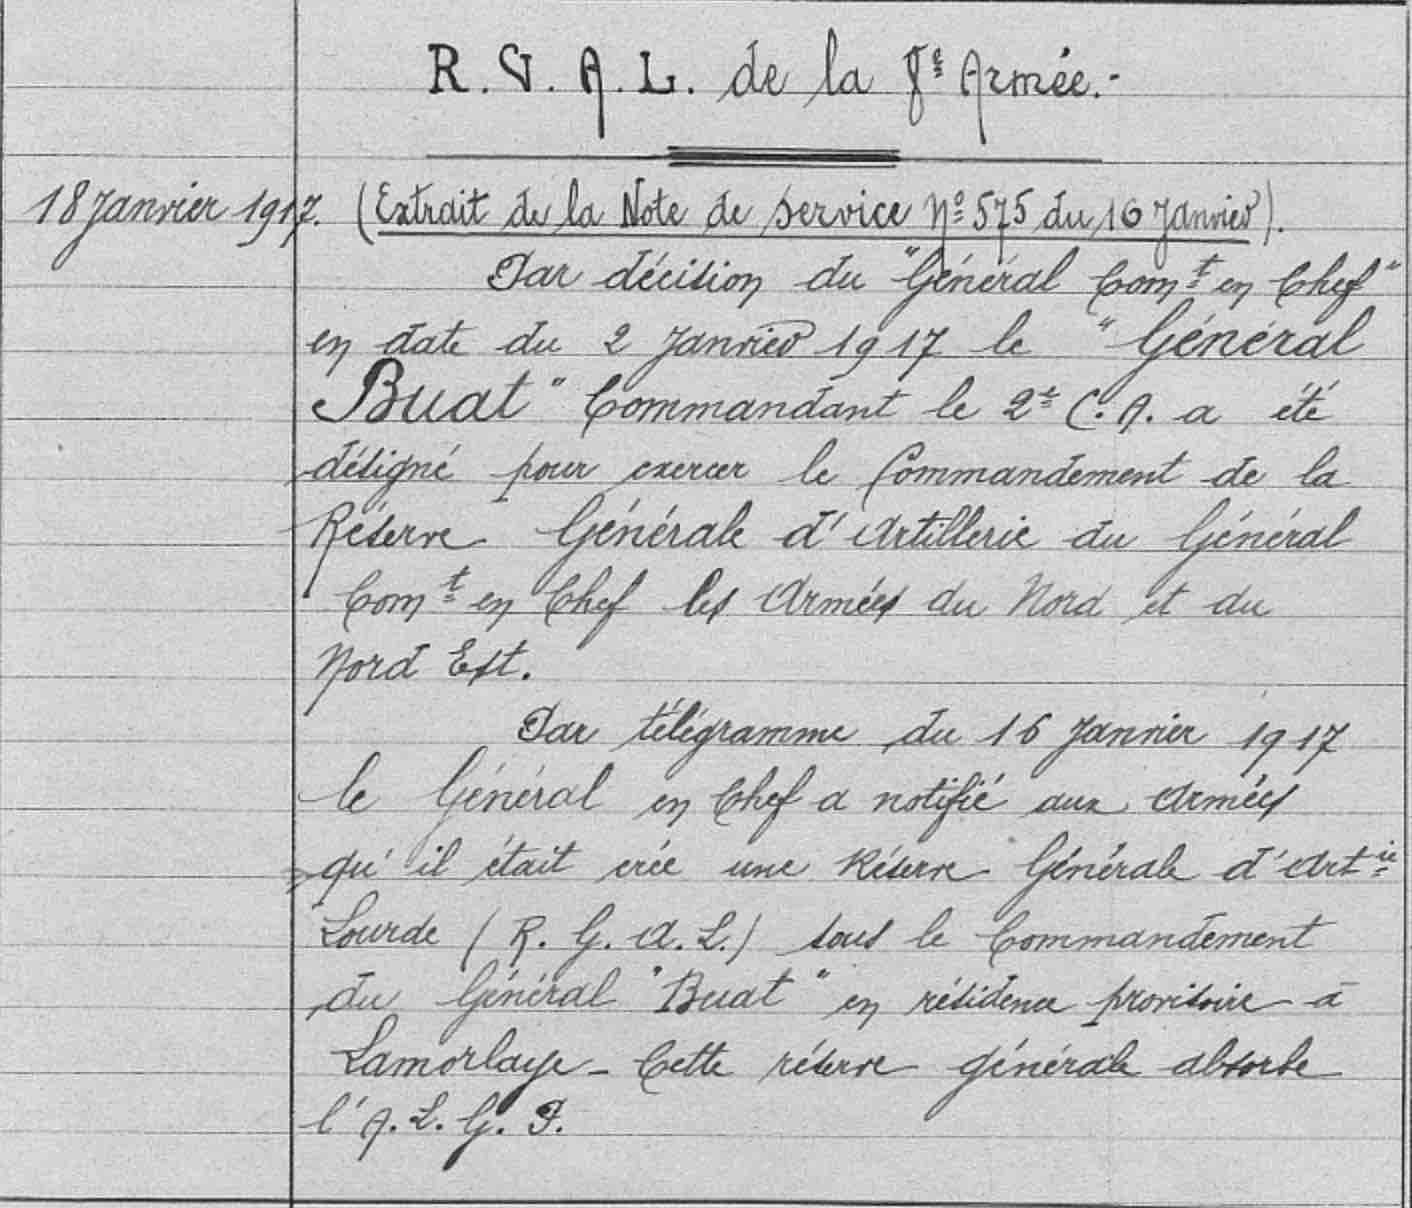 R. G. A. L. de la 8e Armée.-
18 Janvier 1917. (Extrait de la Note de Service No 575 du 16 Janvier).
Par décision du "Général Comt en Chef"
en date du 2 Janvier 1917 le "Général
Buat" Commandant le 2e C. A. a été
désigné pour exercer le Commandement de la
Réserve Générale d'Artillerie du Général
Comt en Chef les Armées du Nord et du
Nord Est.
Par télégramme du 16 Janvier 1917
le Général en Chef a notifié aux Armées
qu'il était crée une Réserve Générale d'Artie
Lourde (R. G. A. L.) sous le Commandement
du Général "Buat" en résidence provisoire à
Lamorlaye - Cette réserve générale absorbe
l'A. L. G. P.